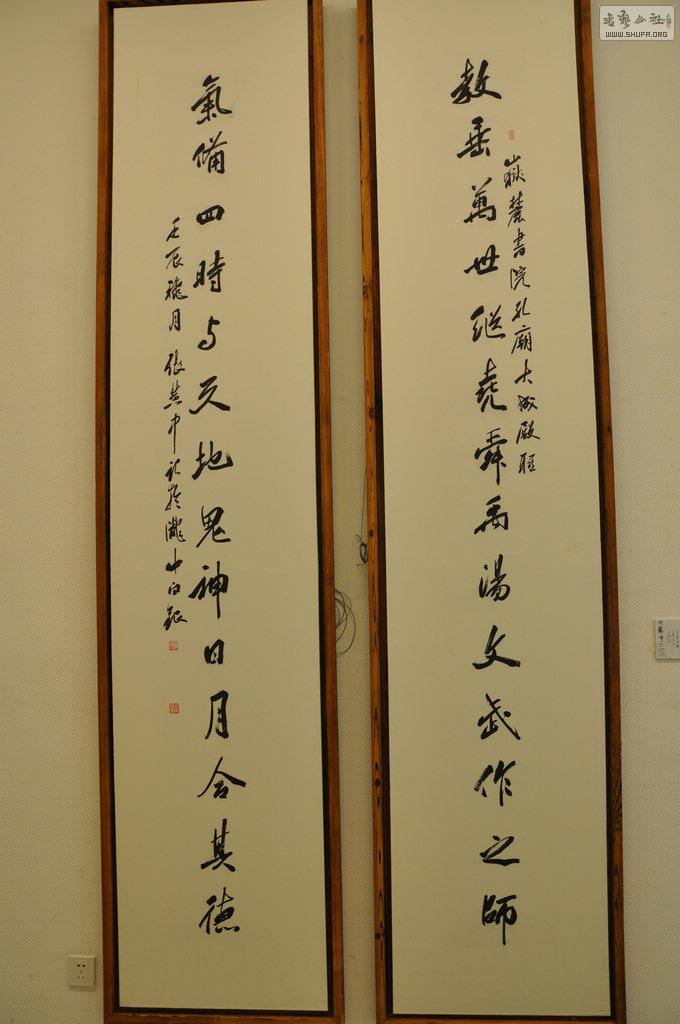 教垂萬世繼堯舜禹湯文武作之師
嶽麓書院孔廟大成殿聯
氣備四時与天地鬼神日月合其德
壬辰
月
張
中
山白銀
書藝公社
WWW.SHUFA.ORG